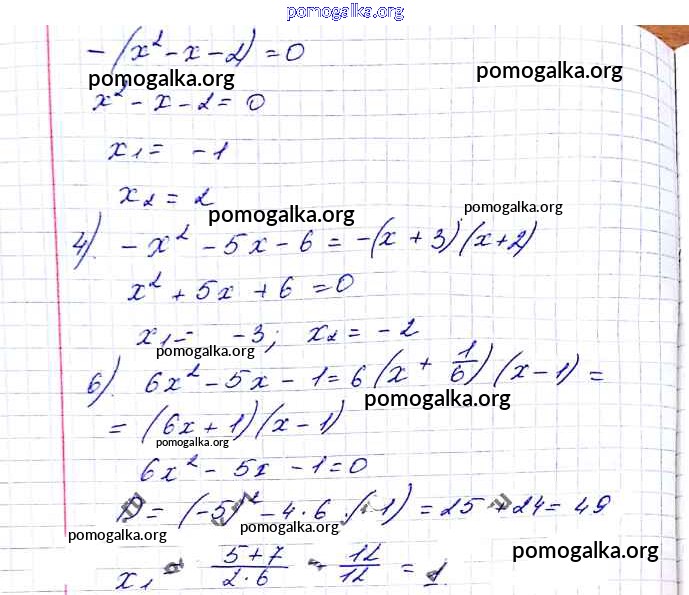 pomogalka.org
-(x² - x - 2) = 0
pomogalka.org
pomogalka.org
x² - x - 2 = 0
x₁ = -1
x₂ = 2
pomogalka.org
pomogalka.org
4). -x² - 5x - 6 = -(x + 3)(x + 2)
x² + 5x + 6 = 0
x₁ = -3; x₂ = -2
pomogalka.org
6). 6x² - 5x - 1 = 6(x + 1/6)(x - 1) =
pomogalka.org
= (6x + 1)(x - 1)
pomogalka.org
6x² - 5x - 1 = 0
D = (-5)² - 4·6·(-1) = 25 + 24 = 49
pomogalka.org
pomogalka.org
x₁ = (5+7)/(2·6) = 12/12 = 1.
pomogalka.org